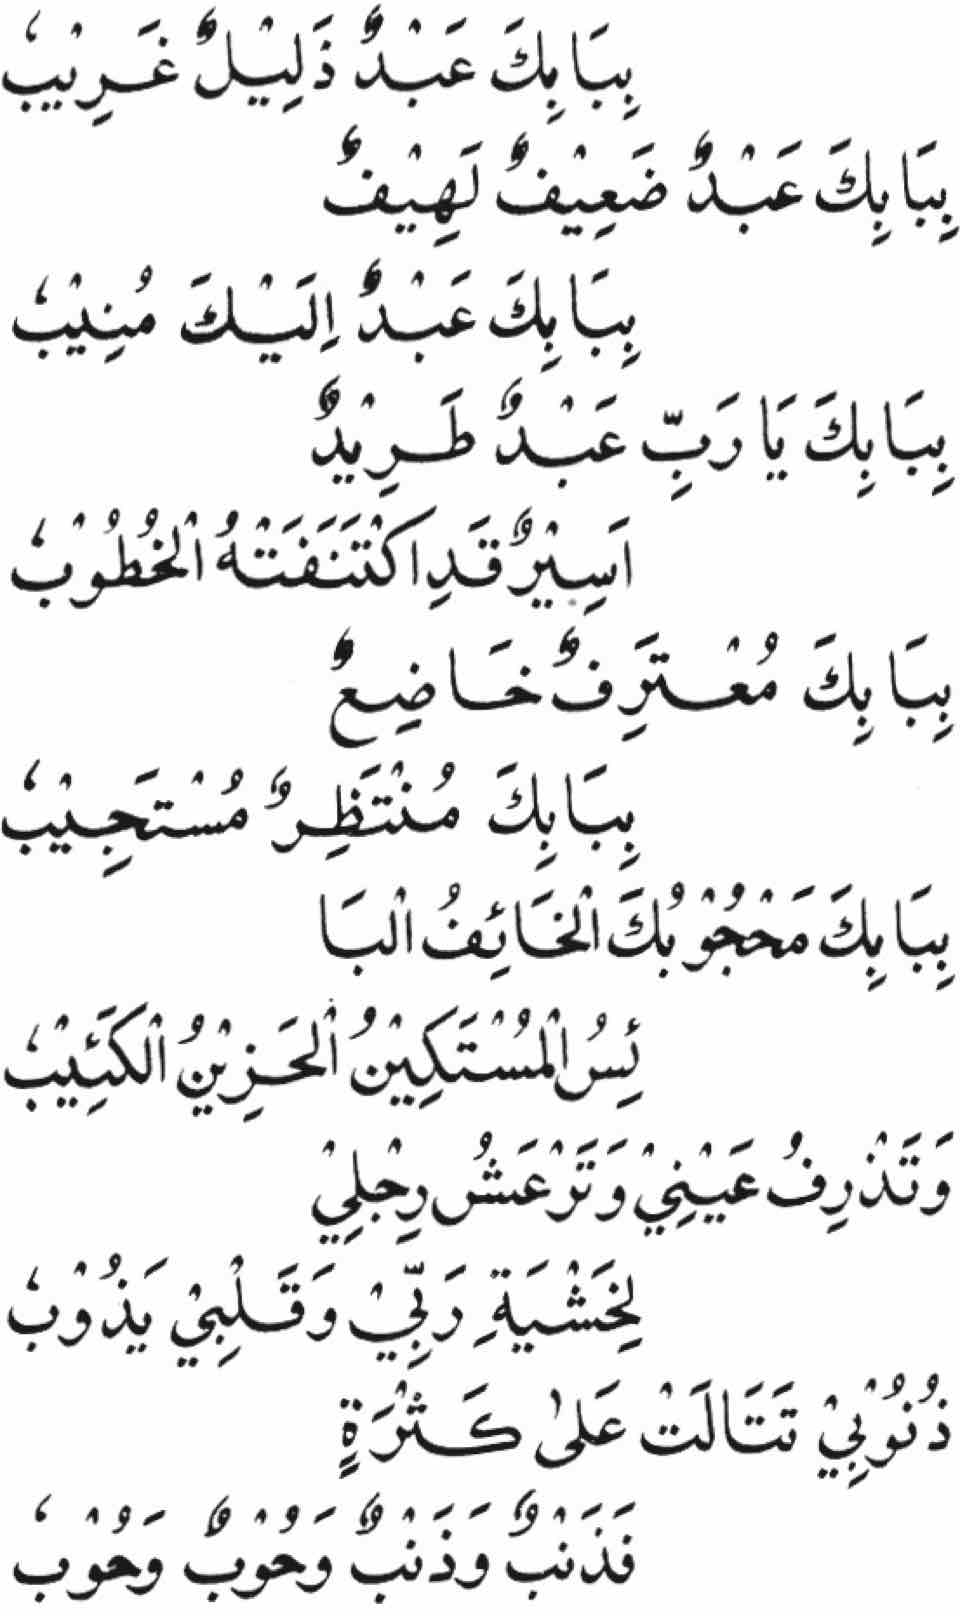 بِبَابِكَ عَبْدٌ ذَلِيْلٌ غَرِيْبُ
بِبَابِكَ عَبْدٌ ضَعِيْفٌ لَهِيْفٌ
بِبَابِكَ عَبْدٌ اِلَيْكَ مُنِيْبُ
بِبَابِكَ يَا رَبِّ عَبْدٌ طَرِيْدٌ
اَسِيْرٌ قَدِ اكْتَنَفَتْهُ الْخُطُوْبُ
بِبَابِكَ مُعْتَرِفٌ خَاضِعٌ
بِبَابِكَ مُنْتَظِرٌ مُسْتَجِيْبُ
بِبَابِكَ مَحْجُوْبُكَ الْخَائِفُ الْبَا
ئِسُ الْمُسْتَكِيْنُ الْحَزِيْنُ الْكَئِيْبُ
وَتَذْرِفُ عَيْنِيْ وَتَرْعَشُ رِجْلِيْ
لِخَشْيَةِ رَبِّيْ وَقَلْبِيْ يَذُوْبُ
ذُنُوْبِيْ تَتَالَتْ عَلٰى كَثْرَةٍ
فَذَنْبٌ وَذَنْبٌ وَحُوْبٌ وَحُوْبُ